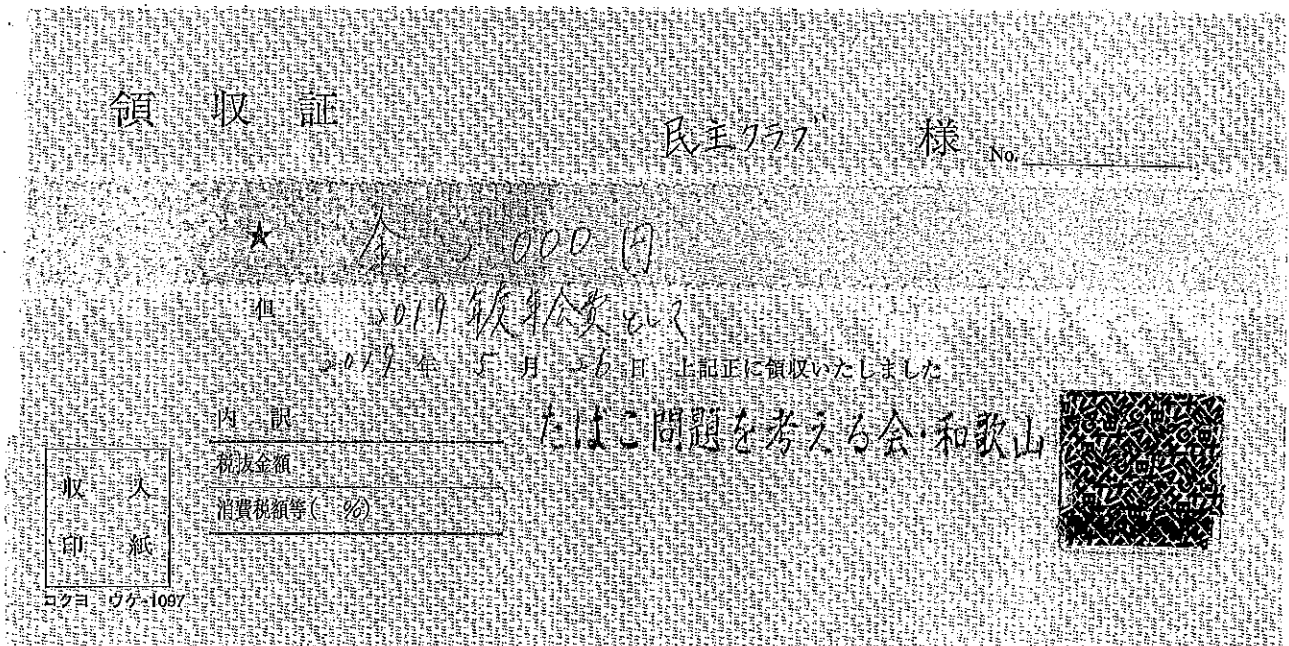 領収証
民主クラブ 様 No.
★ 金 2,000円
但 2019年度年会費として
2019年 5月 26日 上記正に領収いたしました
内訳
税抜金額
消費税額等( %)
たばこ問題を考える会・和歌山
収入
印紙
コクヨ ウケ-1097